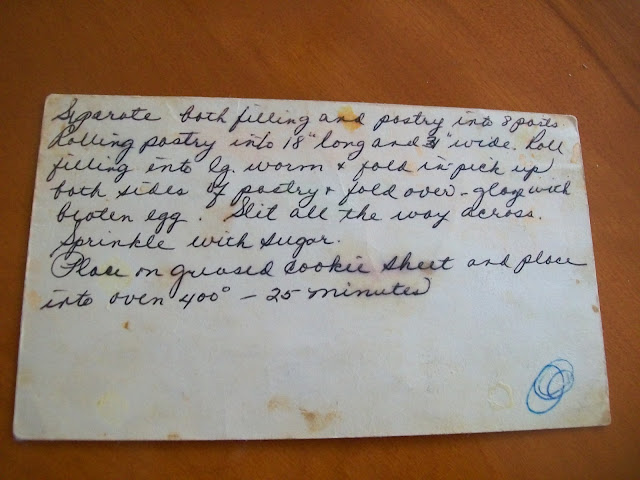 Separate both filling and pastry into 8 parts
Rolling pastry into 18" long and 3" wide. Roll
filling into lg. worm + fold in pick up
both sides of pastry + fold over - glaze with
beaten egg. Slit all the way across.
Sprinkle with sugar.
Place on greased cookie sheet and place
into oven 400° - 25 minutes